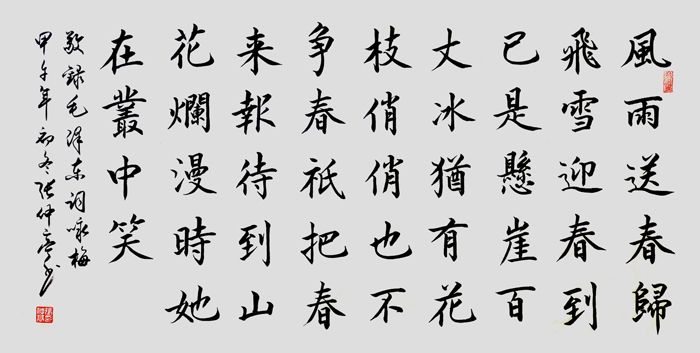 風雨送春歸
飛雪迎春到
已是懸崖百
丈冰猶有花
枝俏俏也不
争春祇把春
来報待到山
花爛漫時她
在叢中笑
敬録毛澤东詞咏梅
甲午年初冬张仲亭书